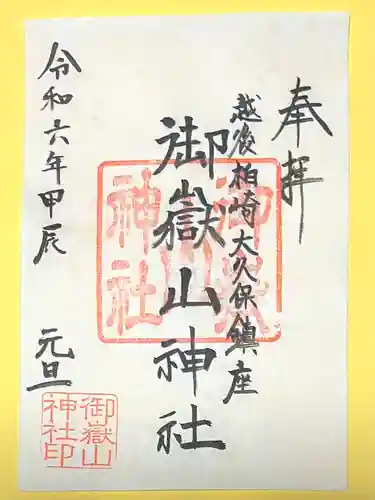 奉拝
越後柏崎大久保鎮座
御嶽山神社
令和六年甲辰
元旦
御嶽山
神社印